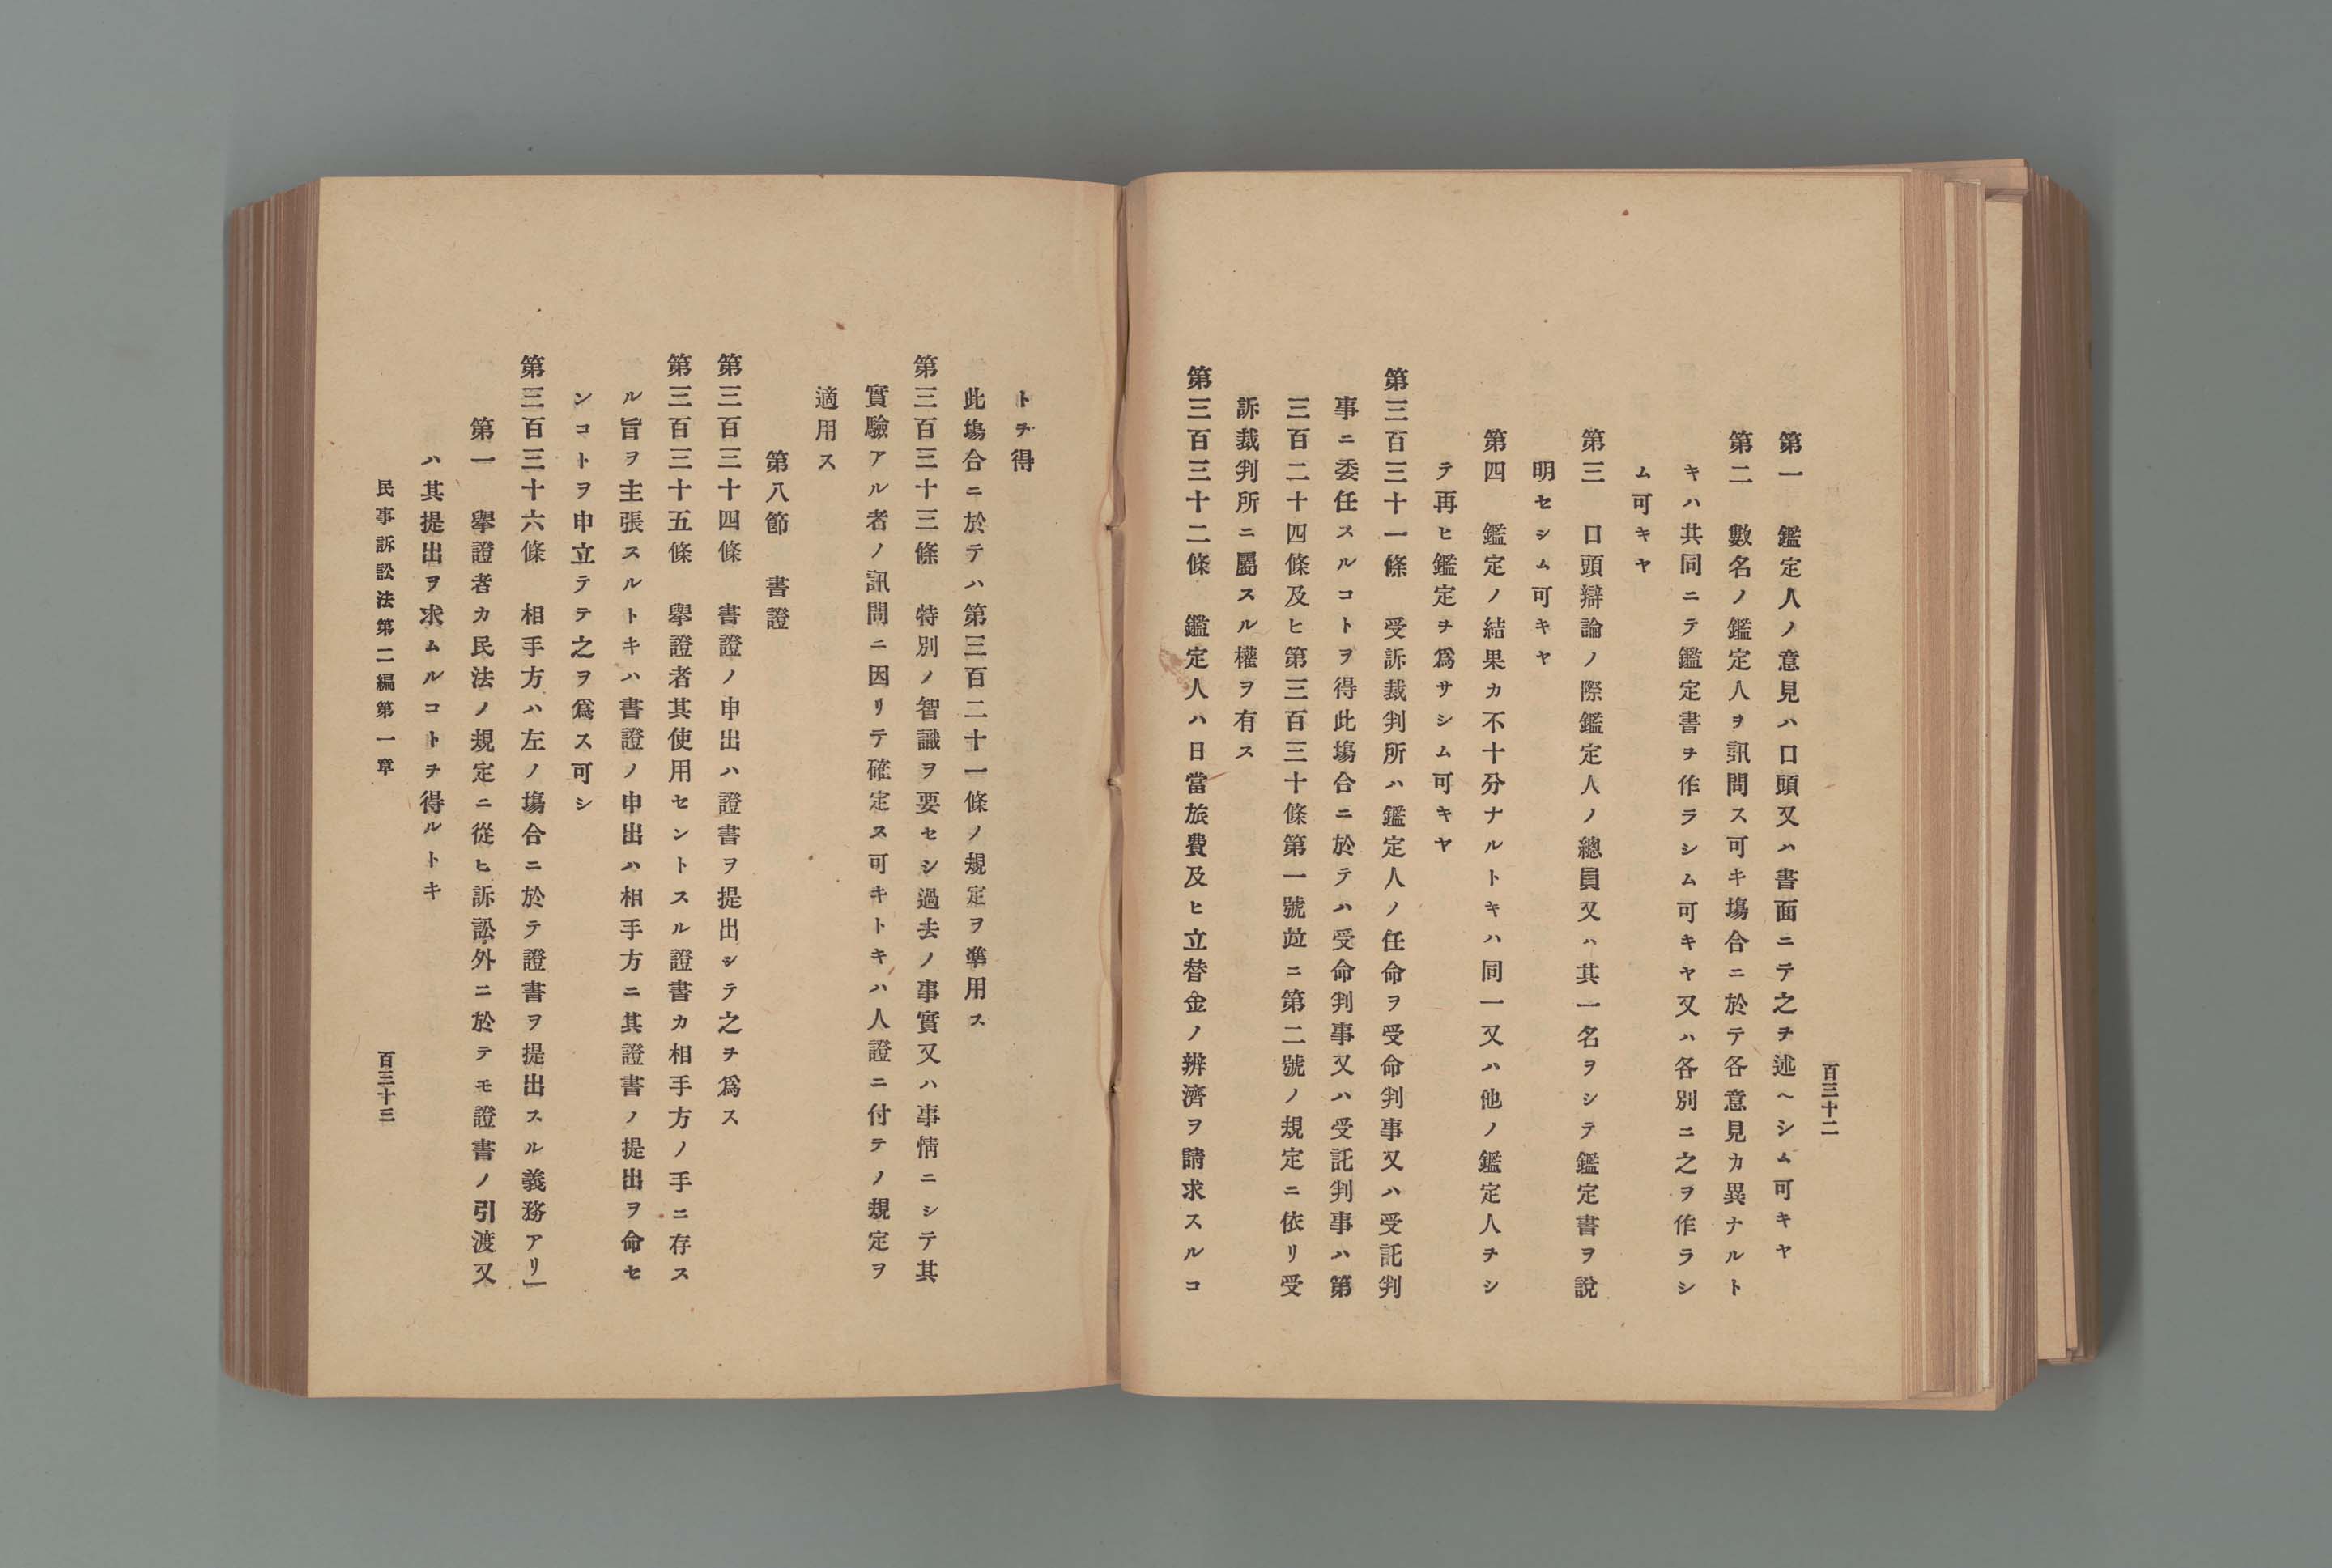 百三十二
第一　鑑定人ノ意見ハ口頭又ハ書面ニテ之ヲ述ヘシム可キヤ
第二　數名ノ鑑定人ヲ訊問ス可キ塲合ニ於テ各意見カ異ナルト
キハ共同ニテ鑑定書ヲ作ラシム可キヤ又ハ各別ニ之ヲ作ラシ
ム可キヤ
第三　口頭辯論ノ際鑑定人ノ總員又ハ其一名ヲシテ鑑定書ヲ說
明セシム可キヤ
第四　鑑定ノ結果カ不十分ナルトキハ同一又ハ他ノ鑑定人ヲシ
テ再ヒ鑑定ヲ爲サシム可キヤ
第三百三十一條　受訴裁判所ハ鑑定人ノ任命ヲ受命判事又ハ受託判
事ニ委任スルコトヲ得此塲合ニ於テハ受命判事又ハ受託判事ハ第
三百二十四條及ヒ第三百三十條第一號竝ニ第二號ノ規定ニ依リ受
訴裁判所ニ屬スル權ヲ有ス
第三百三十二條　鑑定人ハ日當旅費及ヒ立替金ノ辨濟ヲ請求スルコ
トヲ得
此塲合ニ於テハ第三百二十一條ノ規定ヲ準用ス
第三百三十三條　特別ノ智識ヲ要セシ過去ノ事實又ハ事情ニシテ其
實驗アル者ノ訊問ニ因リテ確定ス可キトキハ人證ニ付テノ規定ヲ
適用ス
第八節　書證
第三百三十四條　書證ノ申出ハ證書ヲ提出シテ之ヲ爲ス
第三百三十五條　擧證者其使用セントスル證書カ相手方ノ手ニ存ス
ル旨ヲ主張スルトキハ書證ノ申出ハ相手方ニ其證書ノ提出ヲ命セ
ンコトヲ申立テテ之ヲ爲ス可シ
第三百三十六條　相手方ハ左ノ塲合ニ於テ證書ヲ提出スル義務アリ」
第一　擧證者カ民法ノ規定ニ從ヒ訴訟外ニ於テモ證書ノ引渡又
ハ其提出ヲ求ムルコトヲ得ルトキ
民事訴訟法第二編第一章
百三十三